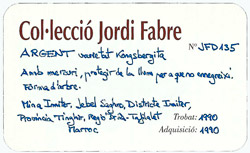 Col·lecció Jordi Fabre
ARGENT varietat Kongsbergita Nº JFD135
Amb mercuri, protegir de la llum per a que no ennegreixi.
Forma d'arbre.
Mina Imiter, Jebel Saghro, Districte Imiter,
Província Tinghir, Regió Drâa-Tafilalet Trobat: 1990
Marroc Adquisició: 1990